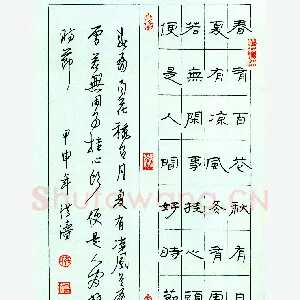 春有百花秋有月
夏有凉風冬有雪
若無閑事挂心頭
便是人間好時節
春有百花秋有月夏有凉風冬
若無閑事挂心頭便是人間好
時節
甲申年
Shufawang.cn